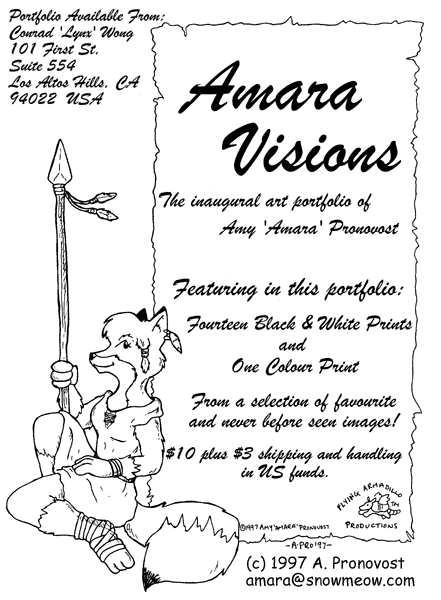 Portfolio Available From:
Conrad 'Lynx' Wong
101 First St.
Suite 554
Los Altos Hills, CA
94022 USA
Amara
Visions
The inaugural art portfolio of
Amy 'Amara' Pronovost
Featuring in this portfolio:
Fourteen Black & White Prints
and
One Colour Print
From a selection of favourite
and never before seen images!
$10 plus $3 shipping and handling
in US funds.
FLYING ARMADILLO
TM
PRODUCTIONS
©1997 AMY "AMARA" PRONOVOST
-A.PRO'97-
(c) 1997 A. Pronovost
amara@snowmeow.com